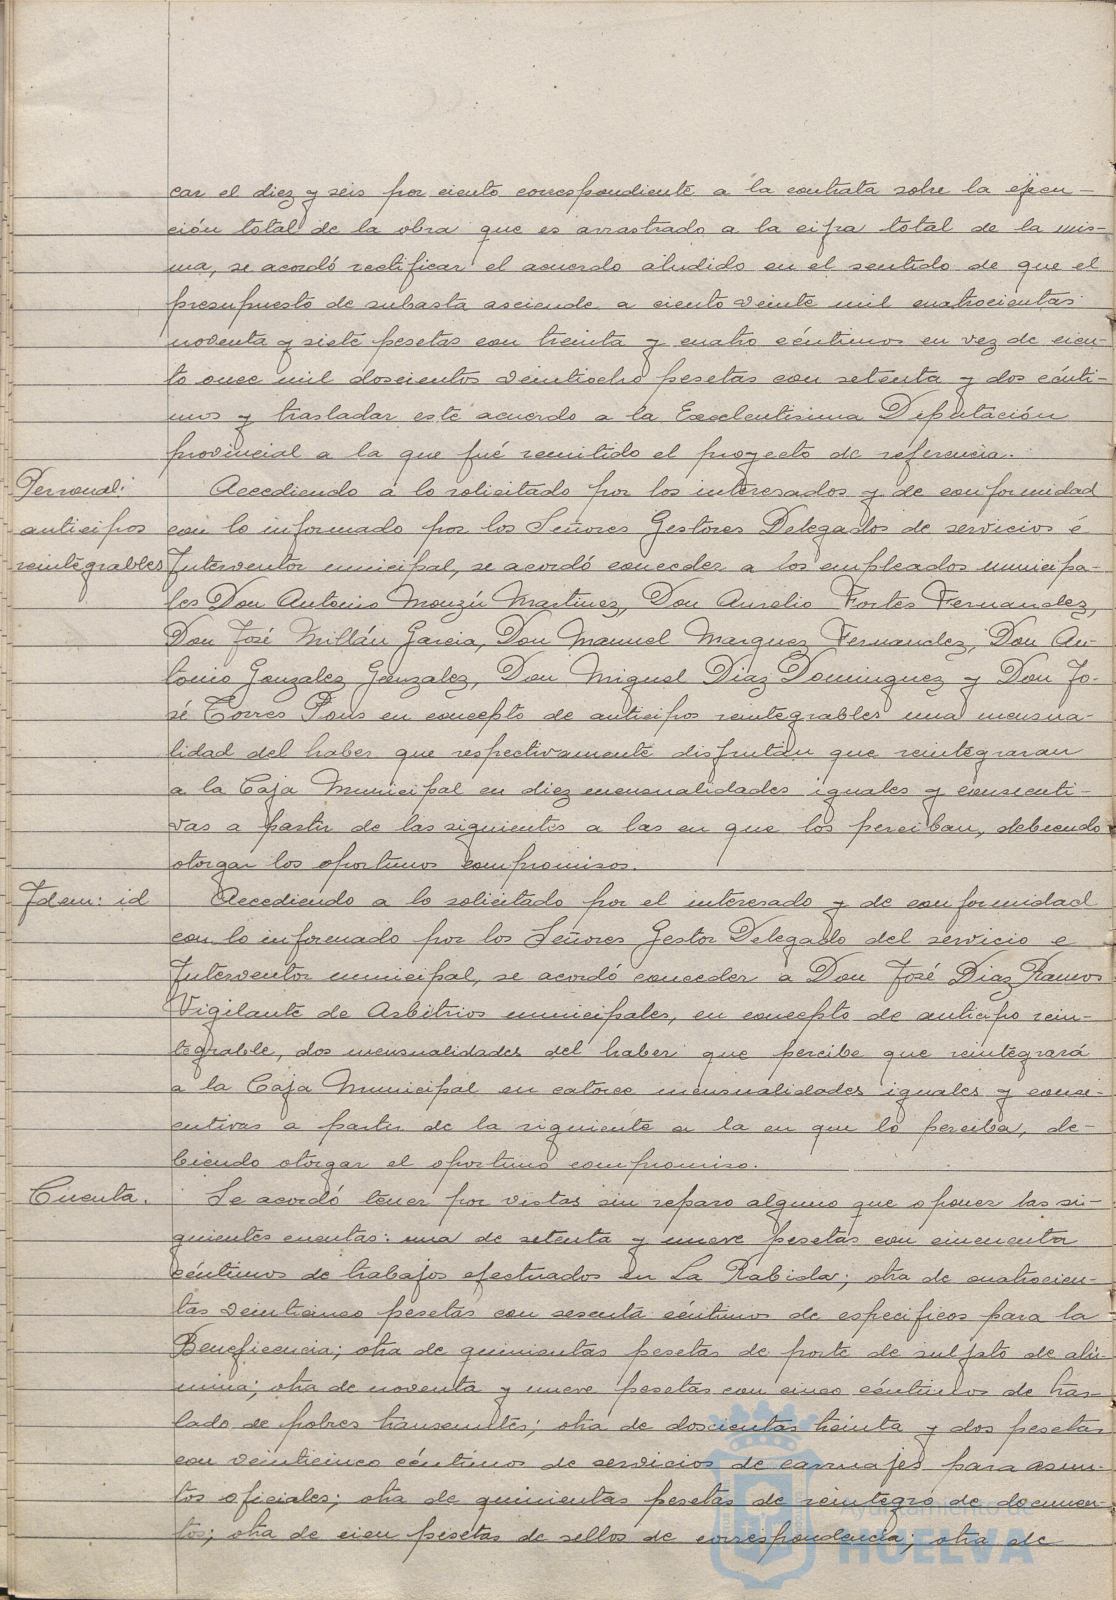 car el diez y seis por ciento correspondiente a la contrata sobre la ejecu-
ción total de la obra que es arrastrado a la cifra total de la mis-
ma, se acordó rectificar el acuerdo aludido en el sentido de que el
presupuesto de subasta asciende a ciento veinte mil cuatrocientas
noventa y siete pesetas con treinta y cuatro céntimos en vez de cien-
to once mil doscientos veintiocho pesetas con setenta y dos cénti-
mos y trasladar este acuerdo a la Excelentisima Diputación
provincial a la que fué remitido el proyecto de referencia.
Personal: Accediendo a lo solicitado por los interesados y de conformidad
anticipos con lo informado por los Señores Gestores Delegados de servicios é
reintegrables Interventor municipal, se acordó conceder a los empleados municipa-
les Don Antonio Monzú Martinez, Don Aurelio Fortes Fernandez,
Don José Millán Garcia, Don Manuel Marquez Fernandez, Don An-
tonio Gonzalez Gonzalez, Don Miguel Diaz Dominguez y Don Jo-
sé Torres Pons en concepto de anticipos reintegrables una mensua-
lidad del haber que respectivamente disfrutan que reintegraran
a la Caja Municipal en diez mensualidades iguales y consecuti-
vas a partir de las siguientes a las en que los perciban, debiendo
otorgar los oportunos compromisos.
Idem: id Accediendo a lo solicitado por el interesado y de conformidad
con lo informado por los Señores Gestor Delegado del servicio e
Interventor municipal, se acordó conceder a Don José Diaz Ramos
Vigilante de Arbitrios municipales, en concepto de anticipo rein-
tegrable, dos mensualidades del haber que percibe que reintegrará
a la Caja Municipal en catorce mensualidades iguales y conse-
cutivas a partir de la siguiente a la en que lo perciba, de-
biendo otorgar el oportuno compromiso.
Cuenta. Se acordó tener por vistas sin reparo alguno que oponer las si-
guientes cuentas: una de setenta y nueve pesetas con cincuenta
céntimos de trabajos efectuados en La Rabida; otra de cuatrocien-
tas veinticinco pesetas con sesenta céntimos de especificos para la
Beneficencia; otra de quinientas pesetas de porte de sulfato de alú-
mina; otra de noventa y nueve pesetas con cinco céntimos de tras-
lado de pobres transeuntes; otra de doscientas treinta y dos pesetas
con veinticinco céntimos de servicios de carruajes para asun-
tos oficiales; otra de quinientas pesetas de reintegro de documen-
tos; otra de cien pesetas de sellos de correspondencia; otra de
Ayuntamiento de
HUELVA